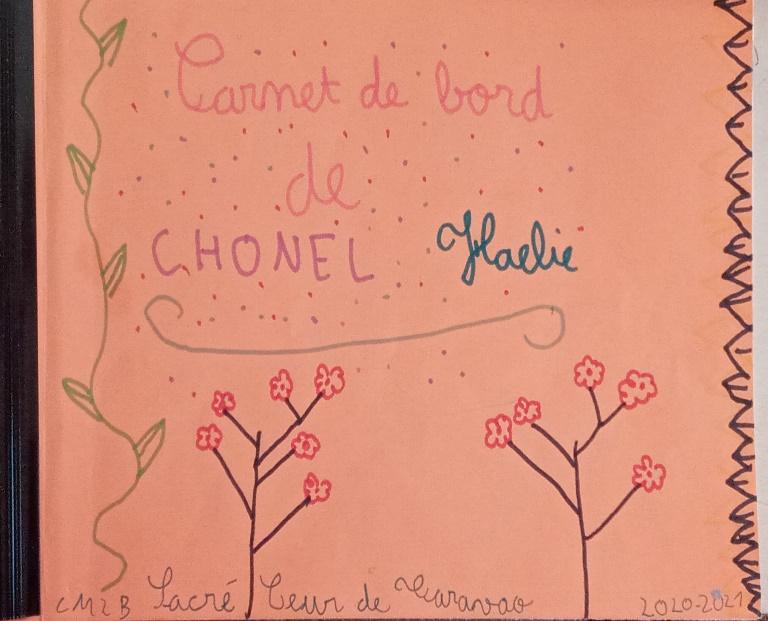 Carnet de bord
de
CHONEL Haelie
CM2 B Sacré Cœur de Taravao 2020-2021